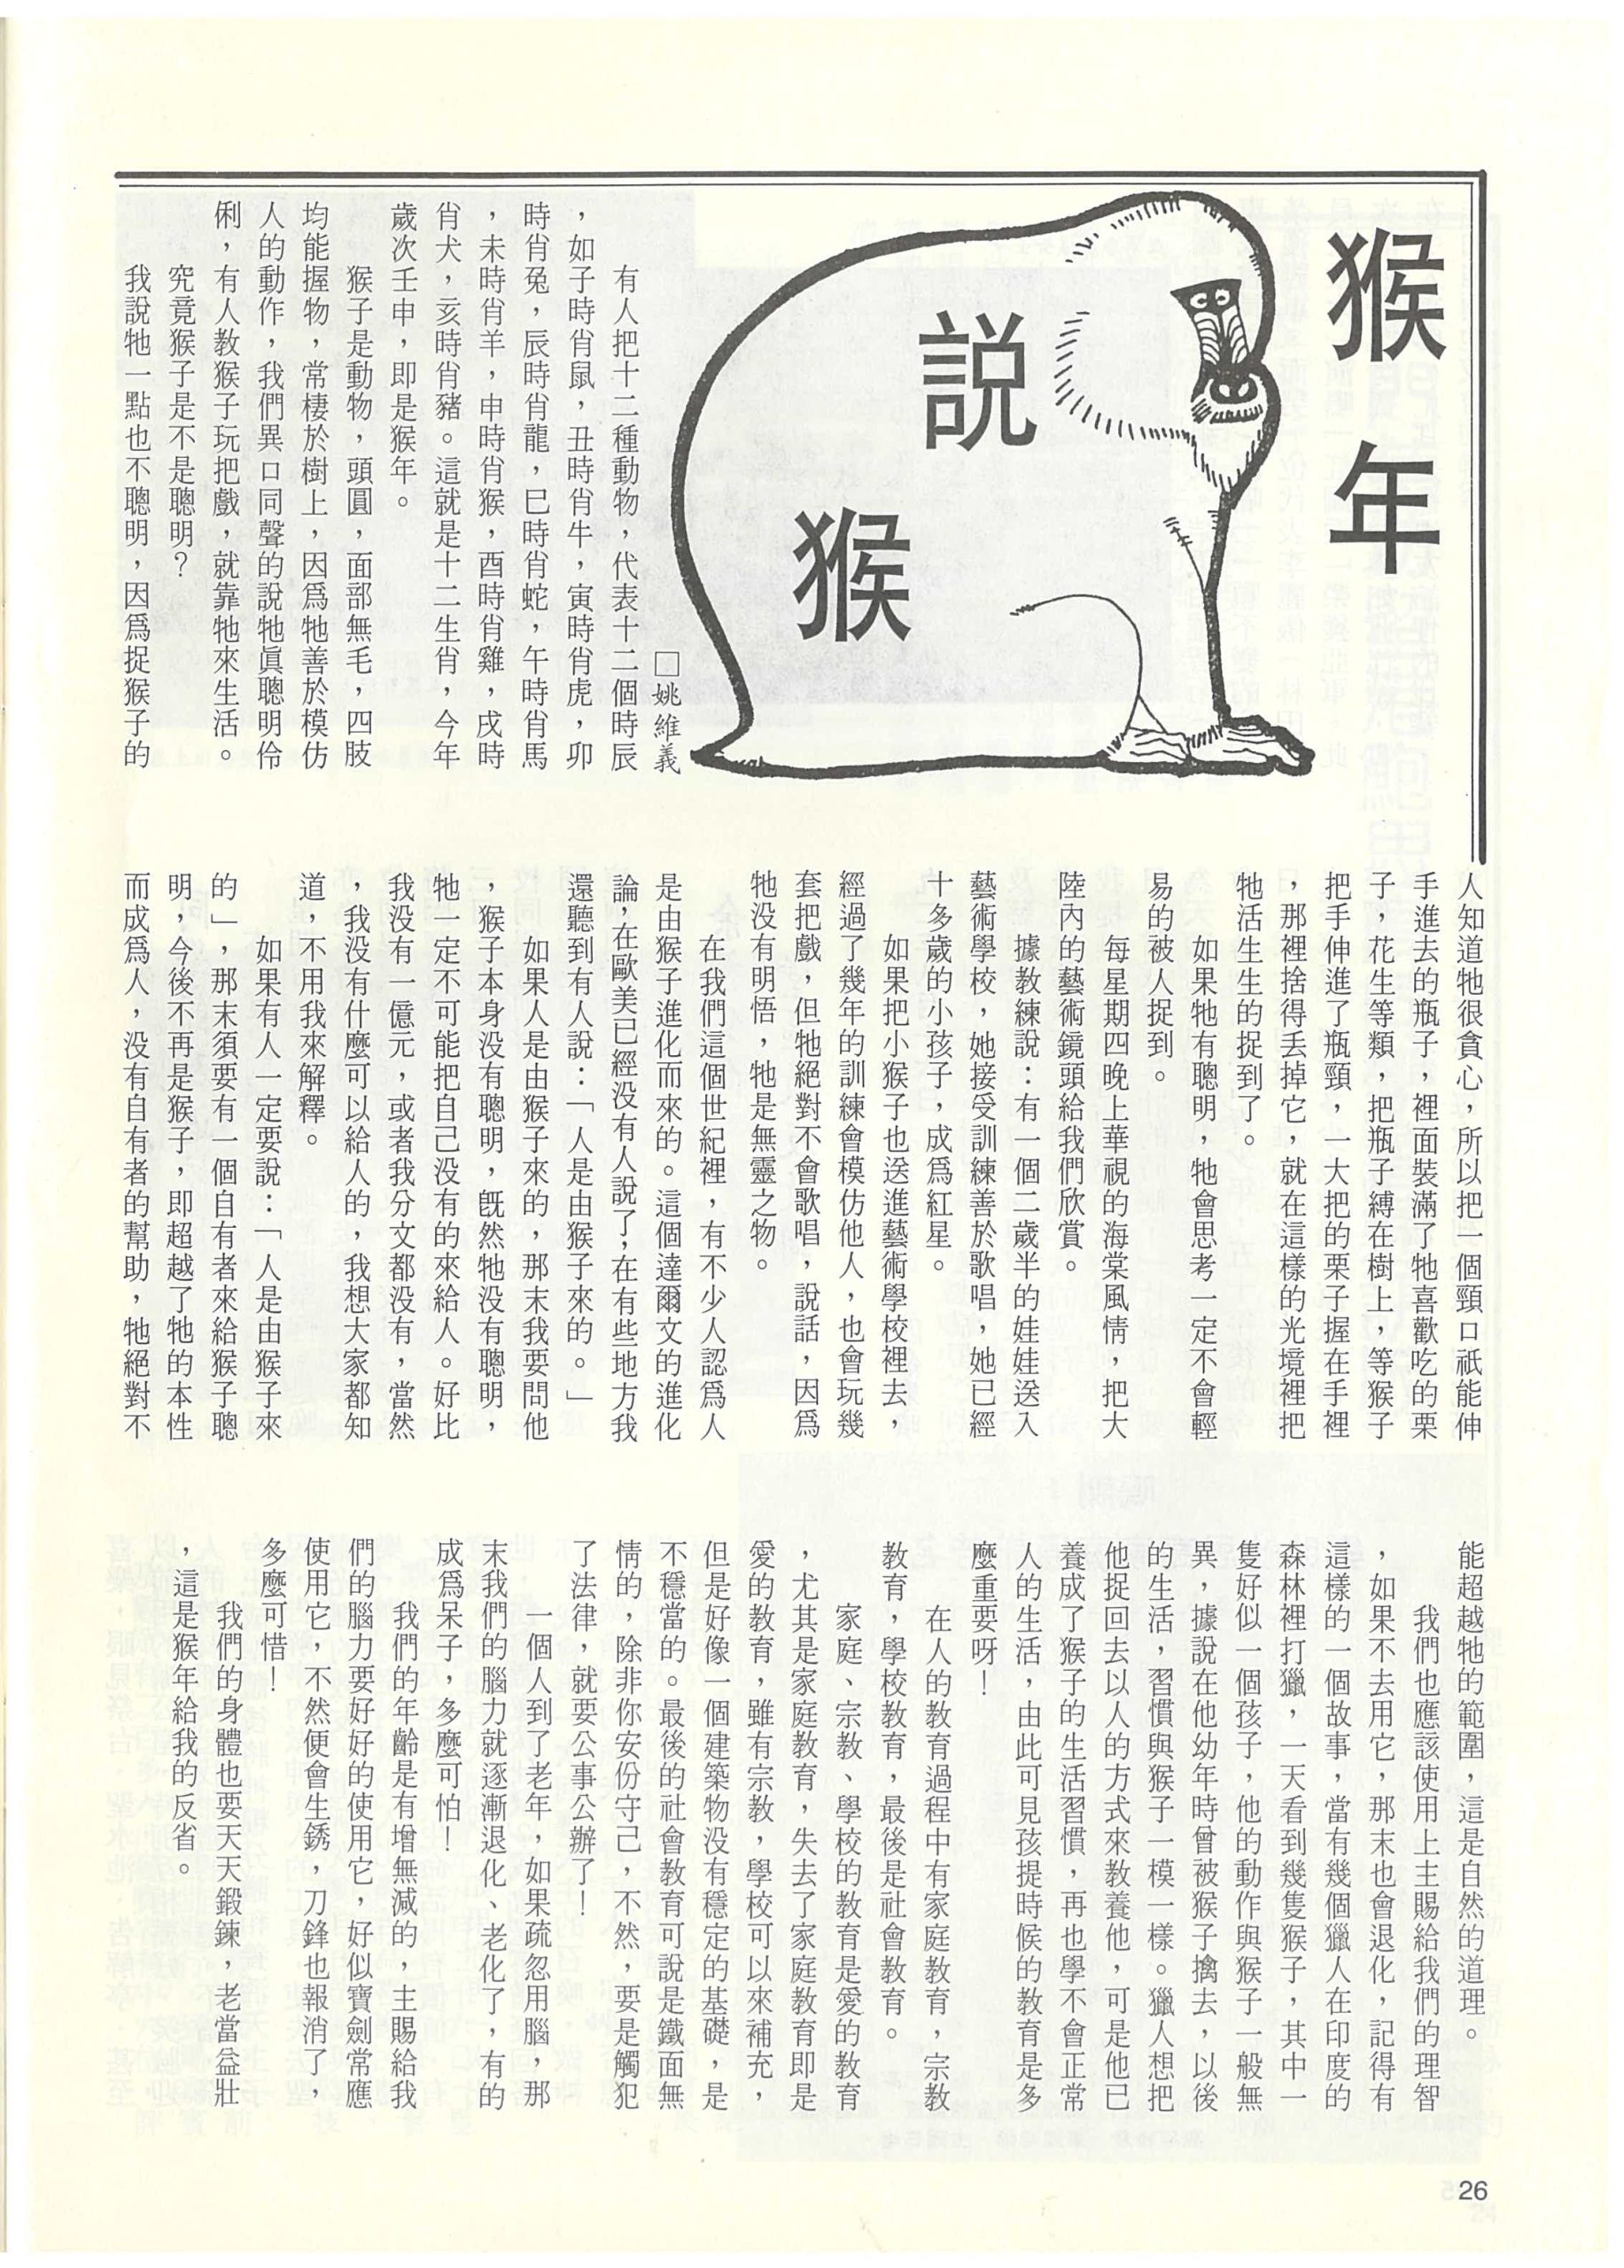 猴年
説
猴
□姚維義
有人把十二種動物，代表十二個時辰
，如子時肖鼠，丑時肖牛，寅時肖虎，卯
時肖兔，辰時肖龍，巳時肖蛇，午時肖馬
，未時肖羊，申時肖猴，酉時肖雞，戌時
肖犬，亥時肖豬。這就是十二生肖，今年
歲次壬申，即是猴年。
猴子是動物，頭圓，面部無毛，四肢
均能握物，常棲於樹上，因爲牠善於模仿
人的動作，我們異口同聲的說牠眞聰明伶
俐，有人教猴子玩把戲，就靠牠來生活。
究竟猴子是不是聰明？
我說牠一點也不聰明，因爲捉猴子的
人知道牠很貪心，所以把一個頸口祇能伸
手進去的瓶子，裡面裝滿了牠喜歡吃的栗
子，花生等類，把瓶子縛在樹上，等猴子
把手伸進了瓶頸，一大把的栗子握在手裡
，那裡捨得丢掉它，就在這樣的光境裡把
牠活生生的捉到了。
如果牠有聰明，牠會思考一定不會輕
易的被人捉到。
每星期四晚上華視的海棠風情，把大
陸內的藝術鏡頭給我們欣賞。
據教練說：有一個二歲半的娃娃送入
藝術學校，她接受訓練善於歌唱，她已經
十多歲的小孩子，成爲紅星。
如果把小猴子也送進藝術學校裡去，
經過了幾年的訓練會模仿他人，也會玩幾
套把戲，但牠絕對不會歌唱，說話，因爲
牠没有明悟，牠是無靈之物。
在我們這個世紀裡，有不少人認爲人
是由猴子進化而來的。這個達爾文的進化
論，在歐美已經没有人說了，在有些地方我
還聽到有人說：「人是由猴子來的。」
如果人是由猴子來的，那末我要問他
，猴子本身没有聰明，旣然牠没有聰明，
牠一定不可能把自己没有的來給人。好比
我没有一億元，或者我分文都没有，當然
，我没有什麼可以給人的，我想大家都知
道，不用我來解釋。
如果有人一定要說：「人是由猴子來
的」，那末須要有一個自有者來給猴子聰
明，今後不再是猴子，即超越了牠的本性
而成爲人，没有自有者的幫助，牠絕對不
能超越牠的範圍，這是自然的道理。
我們也應該使用上主賜給我們的理智
，如果不去用它，那末也會退化，記得有
這樣的一個故事，當有幾個獵人在印度的
森林裡打獵，一天看到幾隻猴子，其中一
隻好似一個孩子，他的動作與猴子一般無
異，據說在他幼年時曾被猴子擒去，以後
的生活，習慣與猴子一模一樣。獵人想把
他捉回去以人的方式來教養他，可是他已
養成了猴子的生活習慣，再也學不會正常
人的生活，由此可見孩提時候的教育是多
麼重要呀！
在人的教育過程中有家庭教育，宗教
教育，學校教育，最後是社會教育。
家庭、宗教、學校的教育是愛的教育
，尤其是家庭教育，失去了家庭教育即是
愛的教育，雖有宗教，學校可以來補充，
但是好像一個建築物没有穩定的基礎，是
不穩當的。最後的社會教育可說是鐵面無
情的，除非你安份守己，不然，要是觸犯
了法律，就要公事公辦了！
一個人到了老年，如果疏忽用腦，那
末我們的腦力就逐漸退化、老化了，有的
成爲呆子，多麼可怕！
我們的年齡是有增無減的，主賜給我
們的腦力要好好的使用它，好似寶劍常應
使用它，不然便會生銹，刀鋒也報消了，
多麼可惜！
我們的身體也要天天鍛鍊，老當益壯
，這是猴年給我的反省。
26